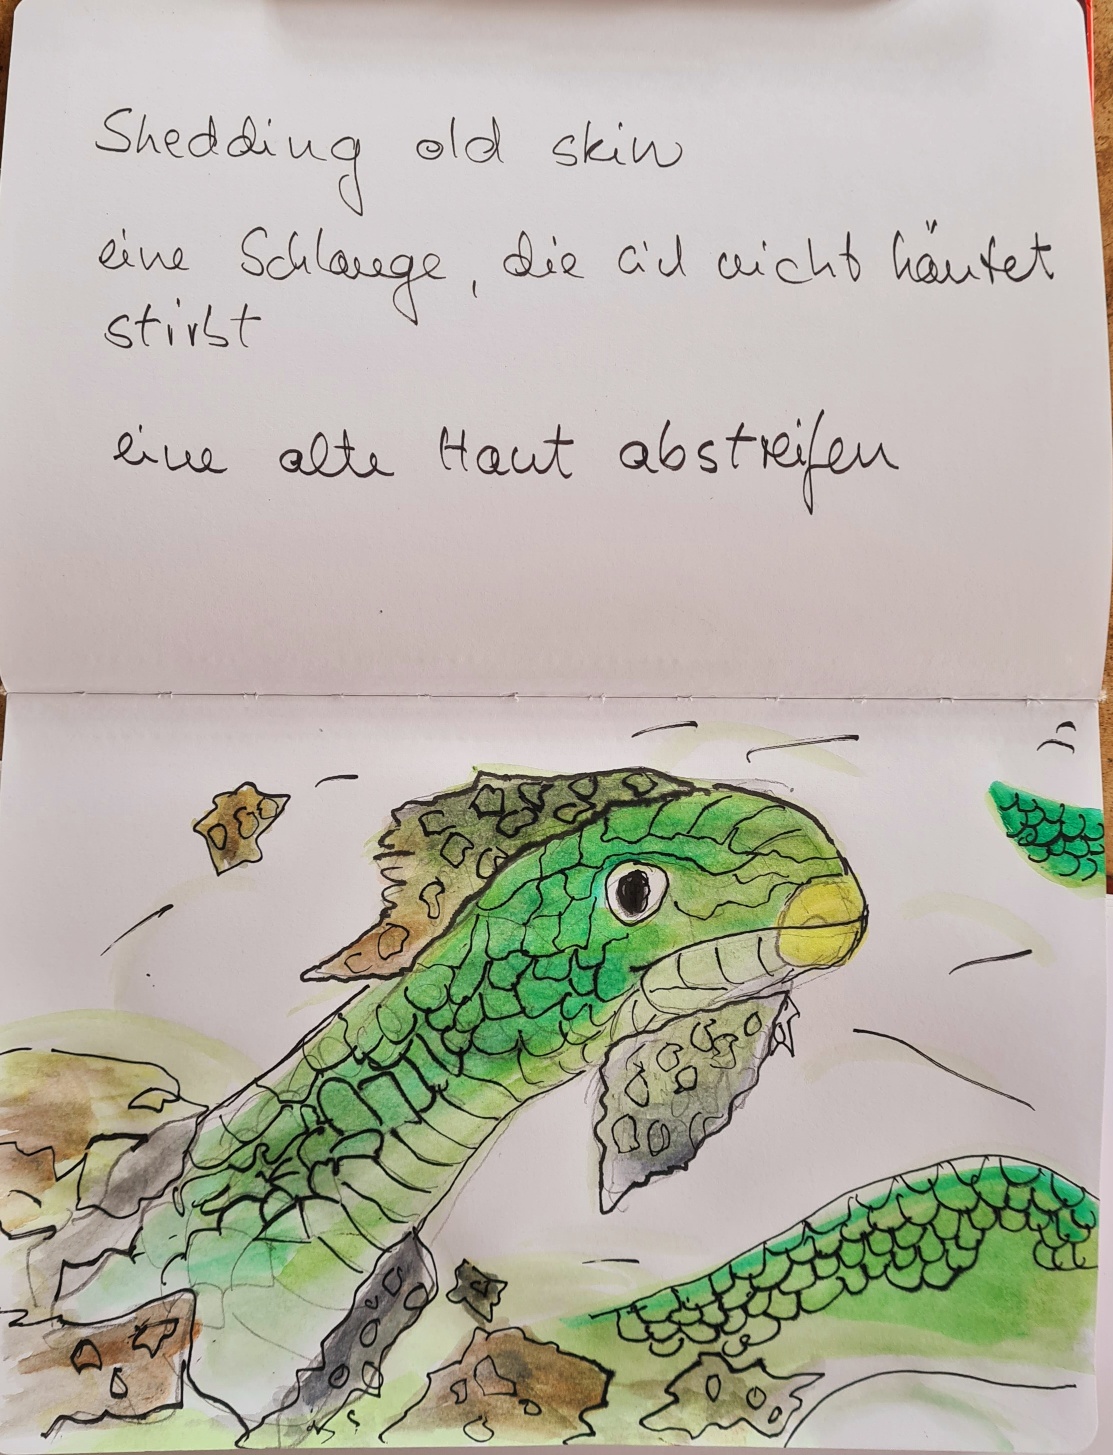 Shedding old skin
eine Schlange, die sich nicht häutet
stirbt
eine alte Haut abstreifen